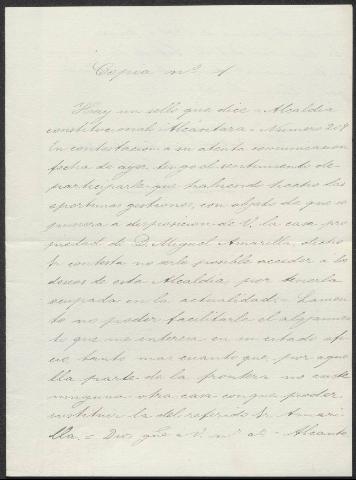 Copia nº 1
Hay un sello que dice = Alcaldia
constitucional Alcántara = Numero 209
En contestacion a su atenta comunicacion
fecha de ayer, tengo el sentimiento de
participarle que habiendo hecho las
oportunas gestiones, con objeto de que se
pusiera a disposicion de V. la casa pro
piedad de D. Miguel Amarilla, dicho
Sr contesta no serle posible acceder a los
deseos de esta Alcaldia, por tenerla
ocupada en la actualidad. = Lamen
to no poder facilitarle el alojamien
to que me interesa en su citado ofi
cio, tanto mas cuanto que, por aque
lla parte de la frontera no existe
ninguna otra casa con que poder
sustituir la del referido Sr Amari
lla. = Dios gue a V. ms as = Alcanta